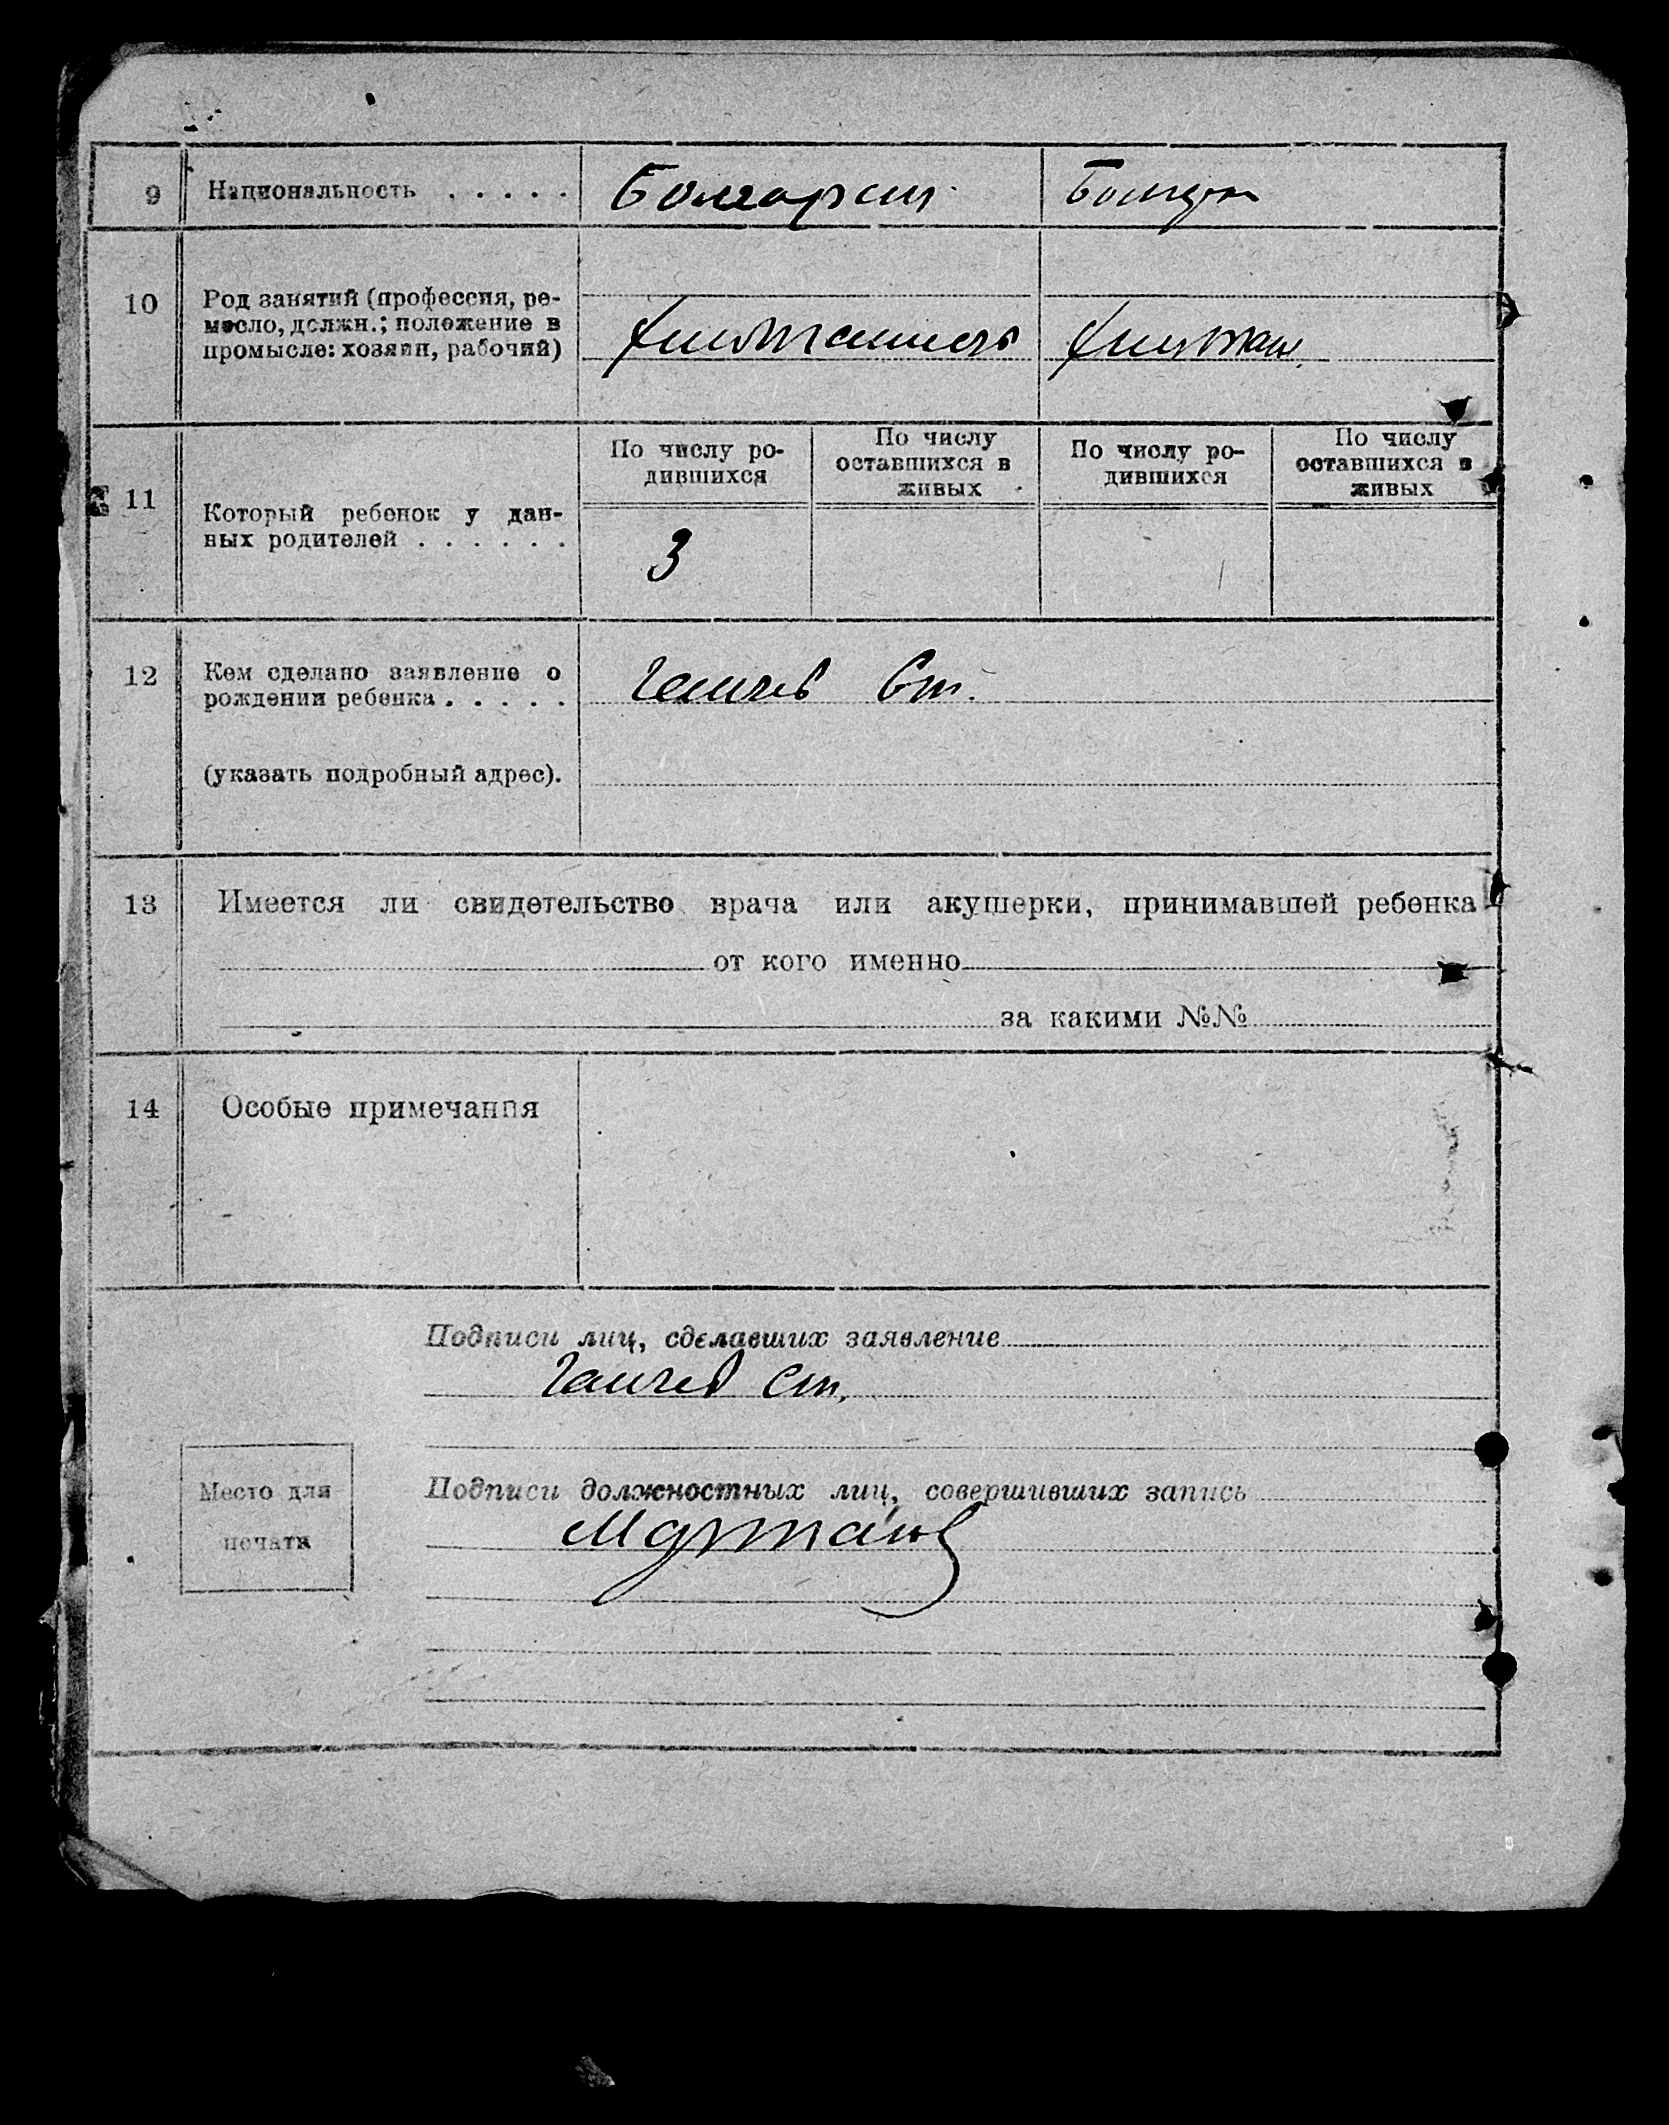 9 Национальность . . . . . Болгарин Болгар
10 Род занятий (профессия, ре-
месло, должн.; положение в
промысле: хозяин, рабочий)
11 Который ребенок у дан-
ных родителей . . . . . .
По числу ро-
дившихся
По числу
оставшихся в
живых
По числу ро-
дившихся
По числу
оставшихся в
живых
3
12 Кем сделано заявление о
рождении ребенка . . . . . Ганчев Ст.
(указать подробный адрес).
13 Имеется ли свидетельство врача или акушерки, принимавшей ребенка
от кого именно
за какими №№
14 Особые примечания
Подписи лиц, сделавших заявление
Ганчев Ст.
Место для
печати
Подписи должностных лиц, совершивших запись